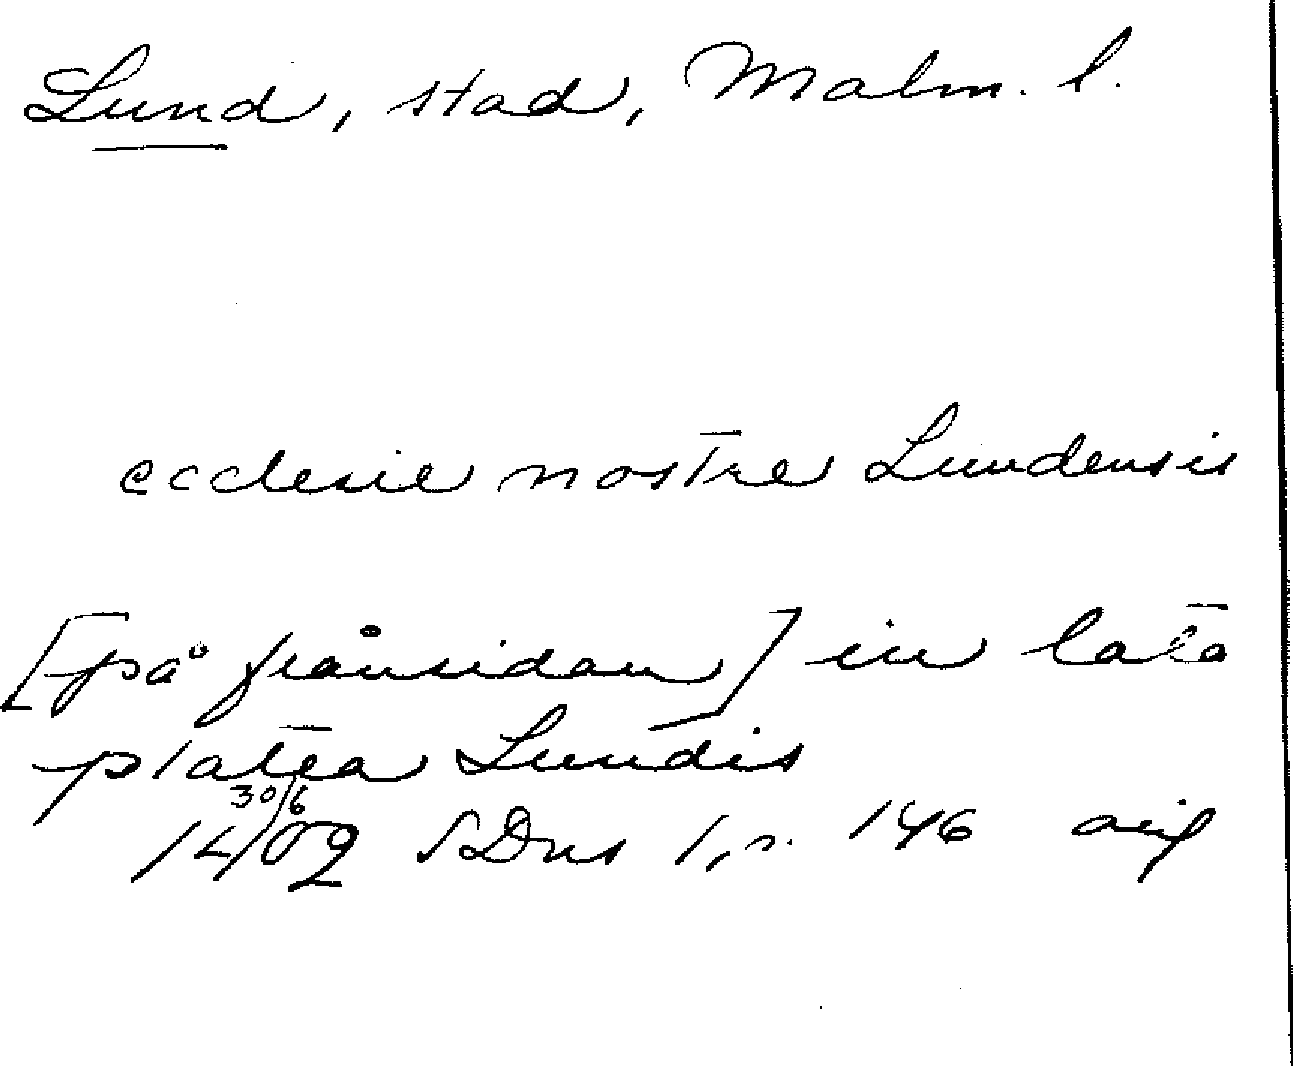 Lund, stad, Malm. l.
ecclesie nostre Lundensis
[på frånsidan] in lata
platea Lundis
30/6
1402 SDns 1, s. 146 avs